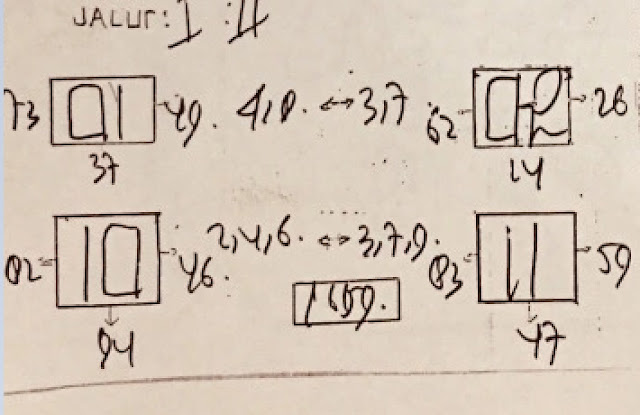 JALUR: I : II
73 01 49. 4,0. ↔ 3,7 62 02 26
37 14
02 10 46. 2,4,6. ↔ 3,7,9. 03 11 59
1659.
94 47